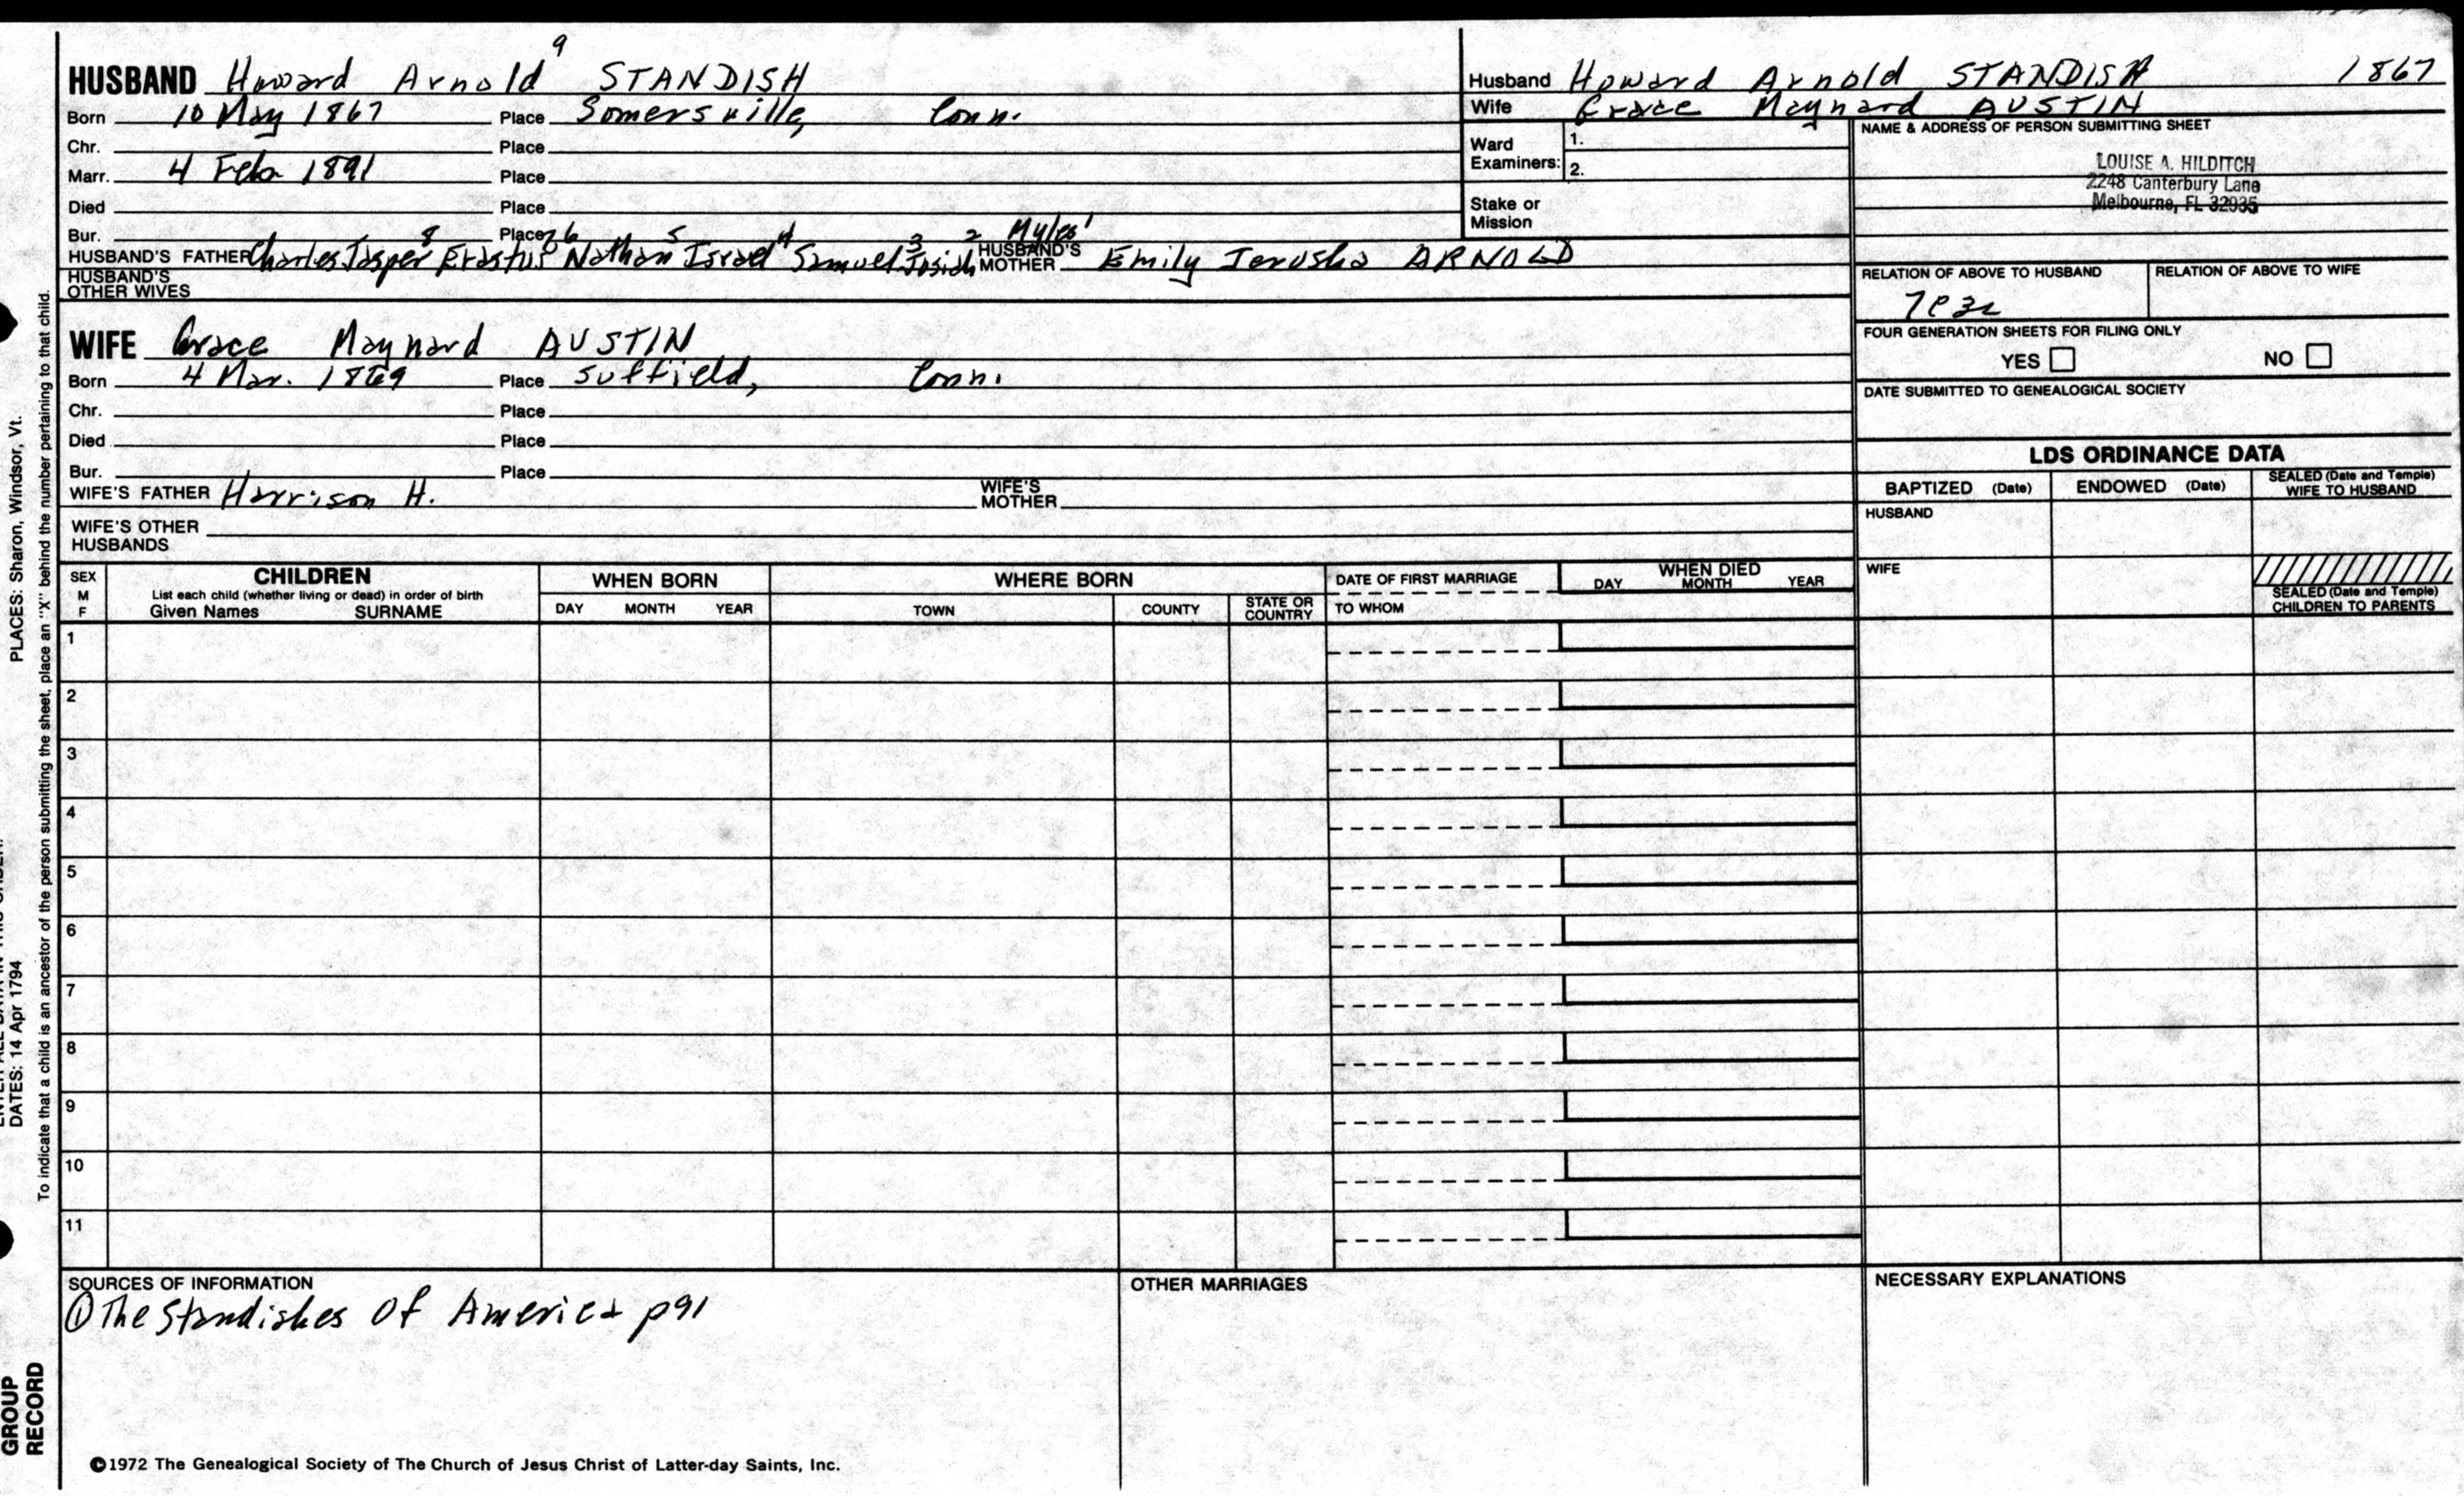 HUSBAND Howard Arnold 9 STANDISH
Born 10 May 1867 Place Somersville, Conn.
Chr. Place
Marr. 4 Feb 1891 Place
Died Place
Bur. Place
HUSBAND'S FATHER Charles Jasper 8 Erastus Nathan 6 Israel 5 Samuel 4 3 Josiah 2 Myles 1 HUSBAND'S MOTHER Emily Jerusha ARNOLD
HUSBAND'S OTHER WIVES
WIFE Grace Maynard AUSTIN
Born 4 Mar. 1869 Place Suffield, Conn.
Chr. Place
Died Place
Bur. Place
WIFE'S FATHER Harrison H. WIFE'S MOTHER
WIFE'S OTHER HUSBANDS
Husband Howard Arnold STANDISH 1867
Wife Grace Maynard AUSTIN
Ward Examiners: 1.
2.
Stake or Mission
NAME & ADDRESS OF PERSON SUBMITTING SHEET
LOUISE A. HILDITCH
2248 Canterbury Lane
Melbourne, FL 32935
RELATION OF ABOVE TO HUSBAND RELATION OF ABOVE TO WIFE
FOUR GENERATION SHEETS FOR FILING ONLY
YES NO
DATE SUBMITTED TO GENEALOGICAL SOCIETY
LDS ORDINANCE DATA
BAPTIZED (Date) ENDOWED (Date) SEALED (Date and Temple) WIFE TO HUSBAND
HUSBAND
WIFE
SEALED (Date and Temple) CHILDREN TO PARENTS
SEX M F
CHILDREN
List each child (whether living or dead) in order of birth
Given Names SURNAME
WHEN BORN
DAY MONTH YEAR
WHERE BORN
TOWN COUNTY STATE OR COUNTRY
DATE OF FIRST MARRIAGE
TO WHOM
WHEN DIED
DAY MONTH YEAR
1
2
3
4
5
6
7
8
9
10
11
SOURCES OF INFORMATION
① The Standishes of America p91
OTHER MARRIAGES
NECESSARY EXPLANATIONS
©1972 The Genealogical Society of The Church of Jesus Christ of Latter-day Saints, Inc.
PLACES: Sharon, Windsor, Vt.
DATES: 14 Apr 1794
To indicate that a child is an ancestor of the person submitting the sheet, place an "X" behind the number pertaining to that child.
GROUP
RECORD